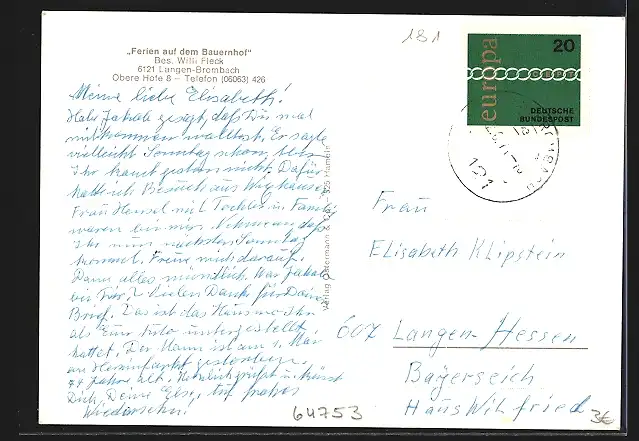 „Ferien auf dem Bauernhof"
Bes. Willi Fleck
6121 Langen-Brombach
Obere Hofe 8 – Telefon (06063) 426
Meine liebe Elisabeth!
Habe Jakob gesagt, daß Du mal
mitkommen wolltest. Er sagte
vielleicht Sonntag schon.
Ihr kamt gestern nicht. Dafür
hatte ich Besuch aus
Frau Hensel mit Tochter u. Familie
waren bei mir. Nehme an, daß
Ihr nun nächsten Sonntag
kommt. Freue mich darauf.
Dann alles mündlich. War Jakob
bei Dir? Vielen Dank für Deine
Brief. Das ist das Haus wo Ihr
als Euer Auto untergestellt
hattet. Der Mann ist am 1. Mai
an Herzinfarkt gestorben,
74 Jahre alt. Herzlich grüßt u. küsst
Dich, Deine Else, auf frohes
Wiedersehn!
181
europa
20
CEPT
DEUTSCHE
BUNDESPOST
121
Frau
Elisabeth Klipstein
607 Langen-Hessen
Bayerseich
Haus Wilfried
64753
3€